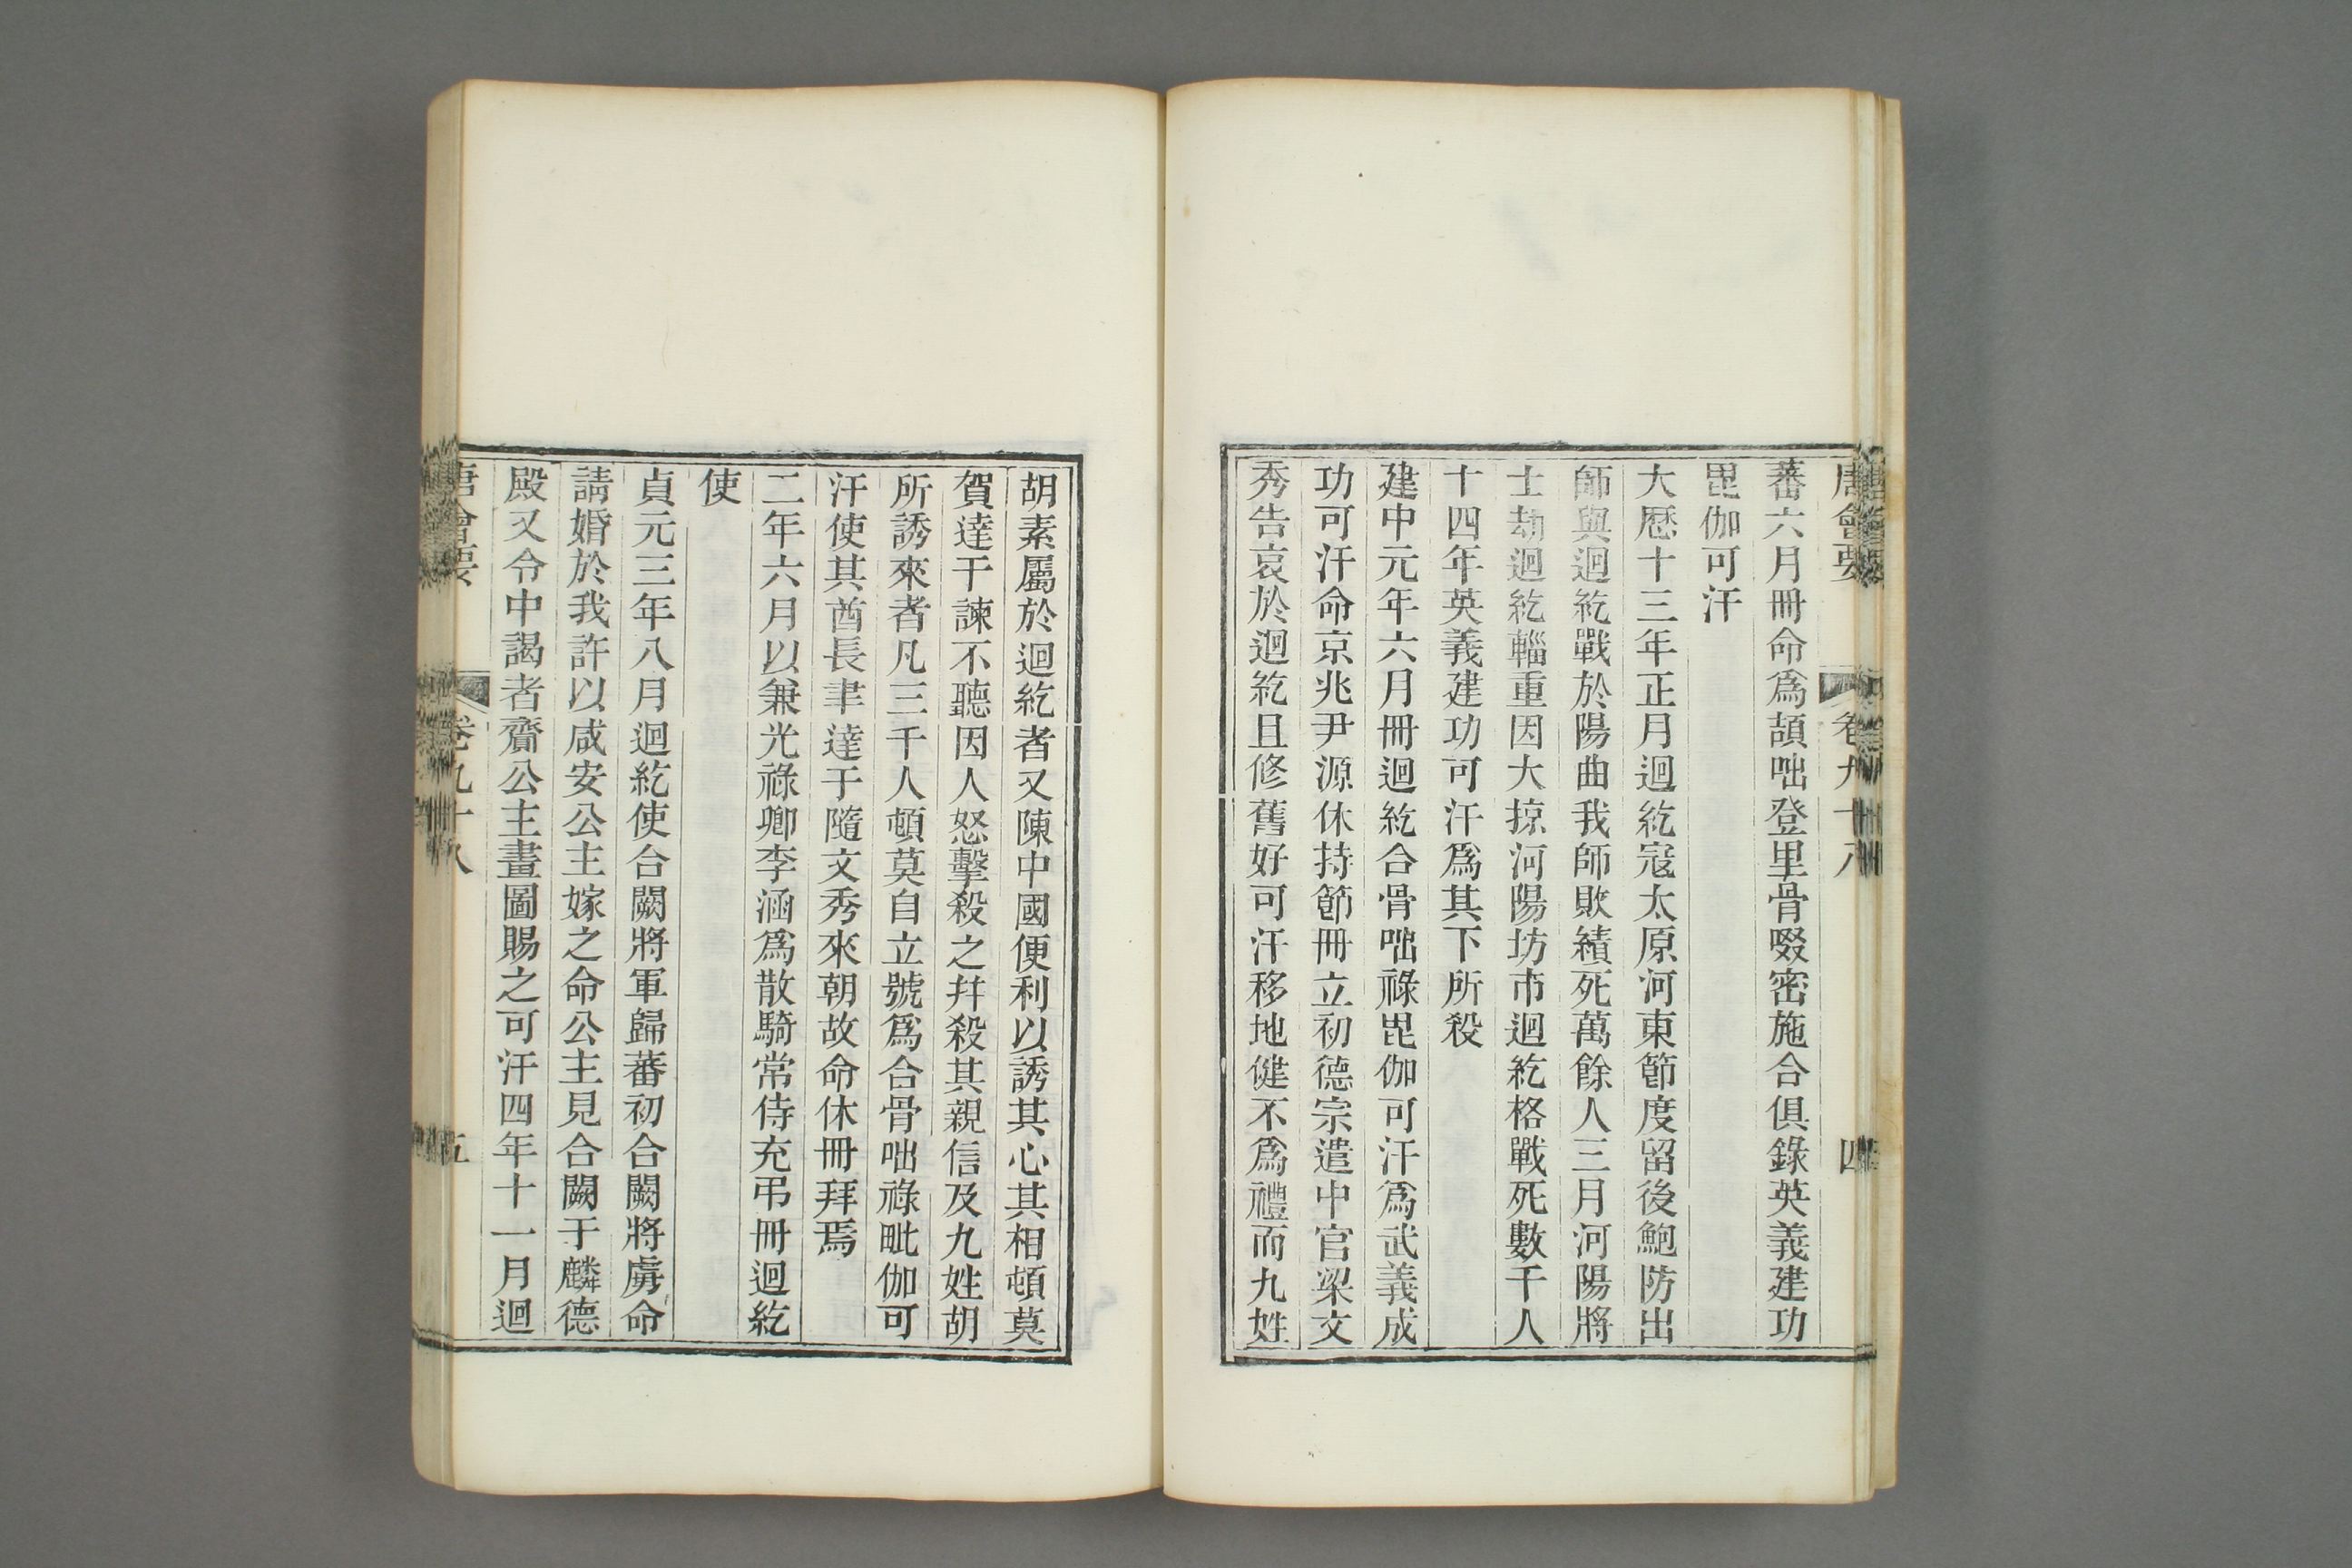 唐會要 卷九十八 四
蕃六月冊命爲頡咄登里骨啜密施合俱錄英義建功
毘伽可汗
大厯十三年正月迴紇寇太原河東節度留後鮑防出
師與迴紇戰於陽曲我師敗績死萬餘人三月河陽將
士劫迴紇輜重因大掠河陽坊市迴紇格戰死數千人
十四年英義建功可汗爲其下所殺
建中元年六月冊迴紇合骨咄祿毘伽可汗爲武義成
功可汗命京兆尹源休持節冊立初德宗遣中官梁文
秀告哀於迴紇且修舊好可汗移地健不爲禮而九姓
胡素屬於迴紇者又陳中國便利以誘其心其相頓莫
賀達干諫不聽因人怒擊殺之幷殺其親信及九姓胡
所誘來者凡三千人頓莫自立號爲合骨咄祿毗伽可
汗使其酋長聿達干隨文秀來朝故命休冊拜焉
二年六月以兼光祿卿李涵爲散騎常侍充弔冊迴紇
使
貞元三年八月迴紇使合闕將軍歸蕃初合闕將虜命
請婚於我許以咸安公主嫁之命公主見合闕于麟德
殿又令中謁者齎公主畫圖賜之可汗四年十一月迴
唐會要 卷九十八 五